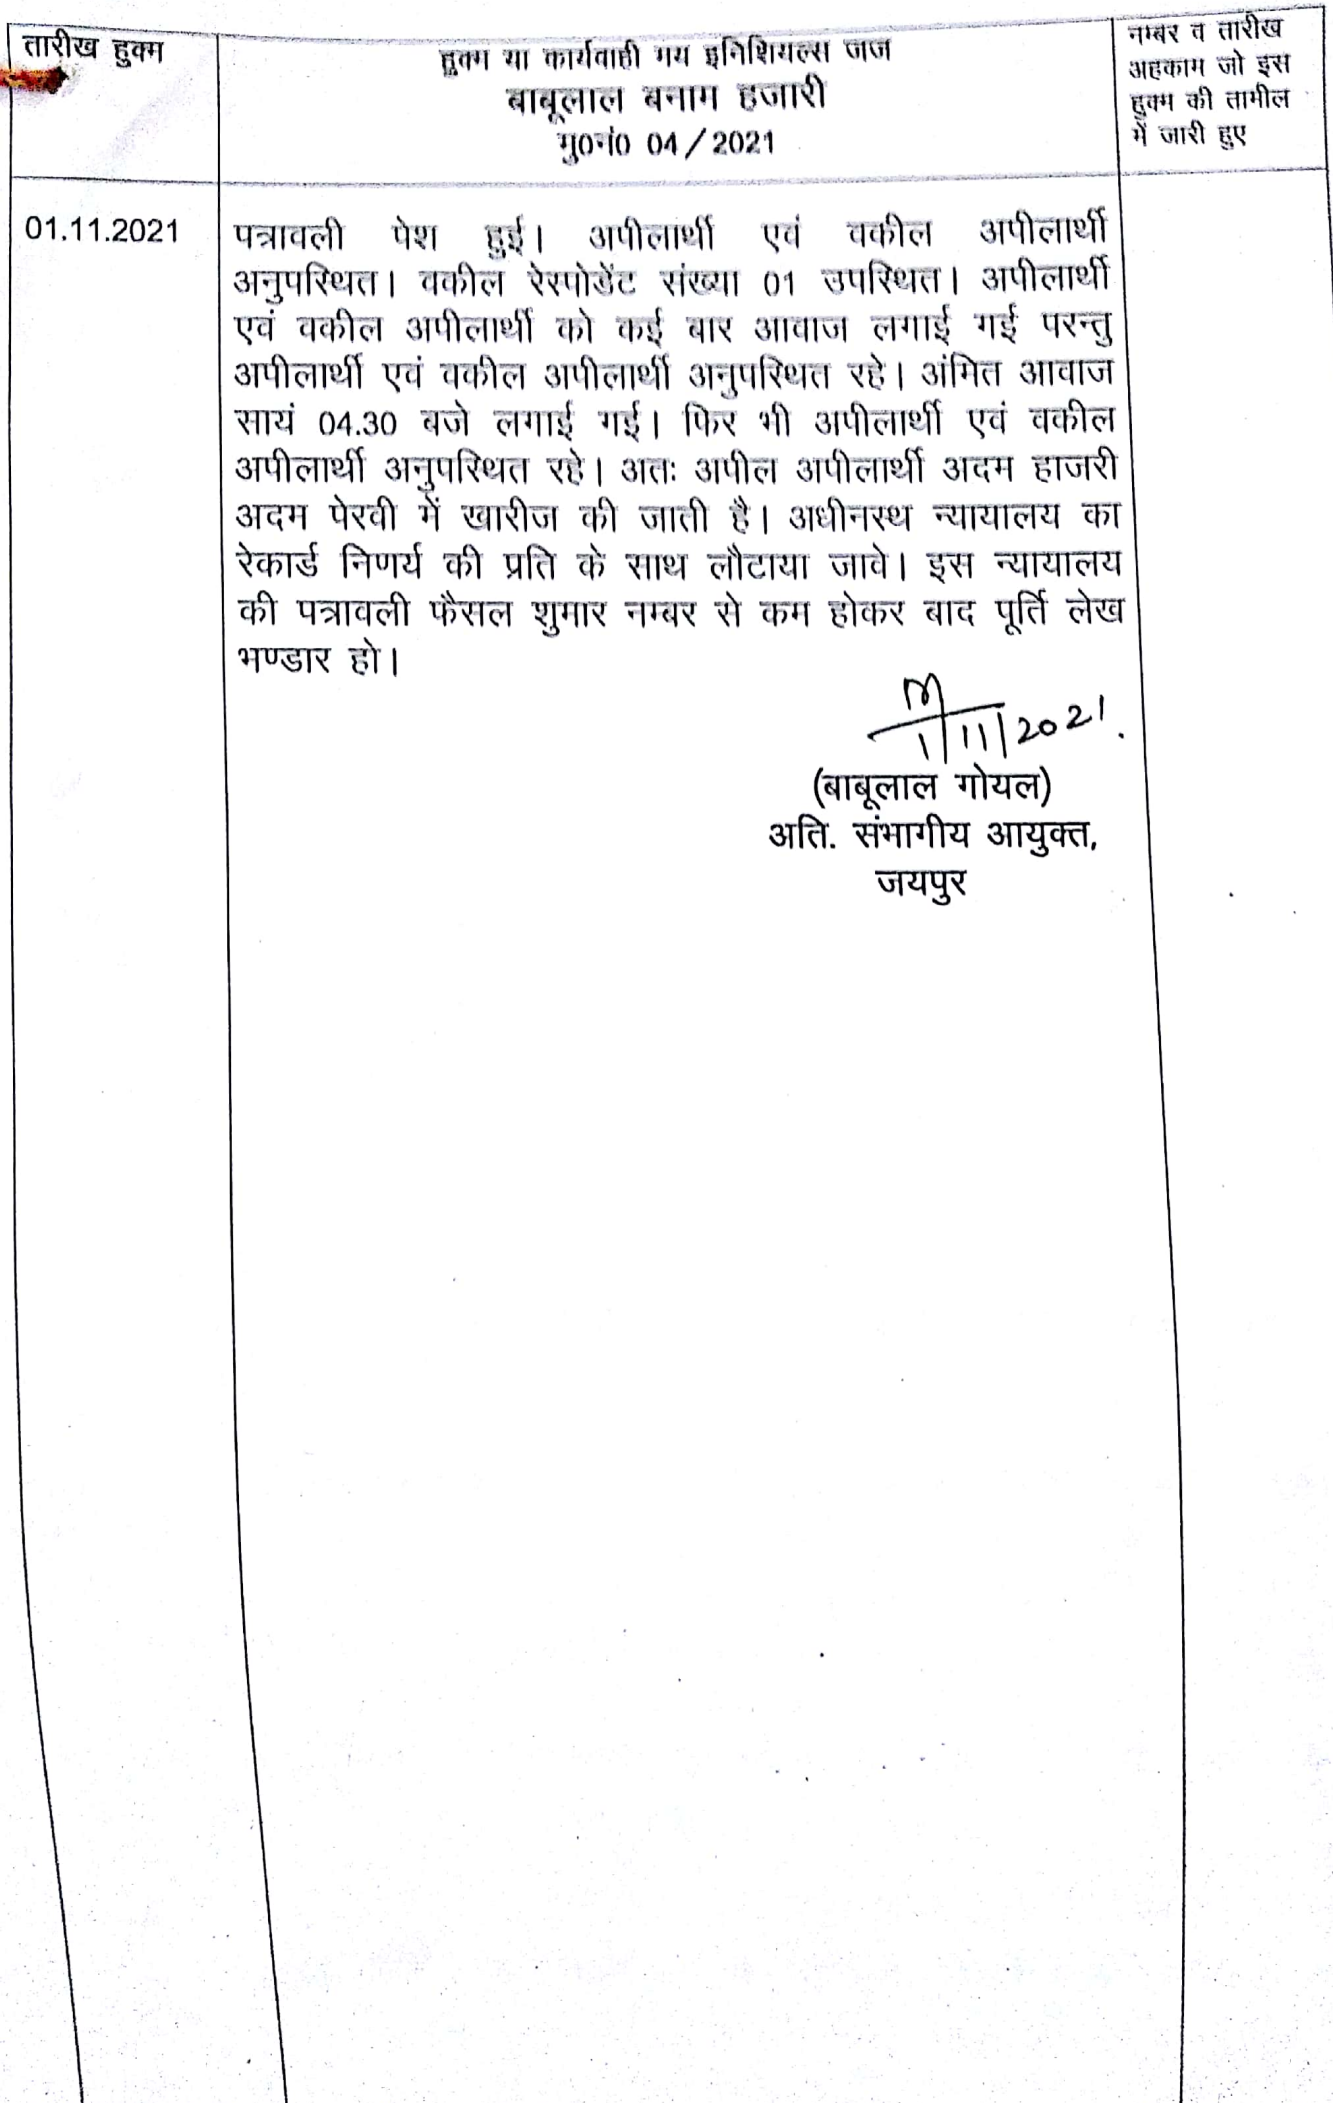 तारीख हुक्म
हुक्म या कार्यवाही मय इनिशियल्स जज
बाबूलाल बनाम हजारी
मु0नं0 04/2021
नम्बर व तारीख
अहकाम जो इस
हुक्म की तामील
में जारी हुए
01.11.2021
पत्रावली पेश हुई। अपीलार्थी एवं वकील अपीलार्थी
अनुपस्थित। वकील रेस्पोडेंट संख्या 01 उपस्थित। अपीलार्थी
एवं वकील अपीलार्थी को कई बार आवाज लगाई गई परन्तु
अपीलार्थी एवं वकील अपीलार्थी अनुपस्थित रहे। अंमित आवाज
सायं 04.30 बजे लगाई गई। फिर भी अपीलार्थी एवं वकील
अपीलार्थी अनुपस्थित रहे। अतः अपील अपीलार्थी अदम हाजरी
अदम पेरवी में खारीज की जाती है। अधीनस्थ न्यायालय का
रेकार्ड निणर्य की प्रति के साथ लौटाया जावे। इस न्यायालय
की पत्रावली फैसल शुमार नम्बर से कम होकर बाद पूर्ति लेख
भण्डार हो।
1/11/2021.
(बाबूलाल गोयल)
अति. संभागीय आयुक्त,
जयपुर